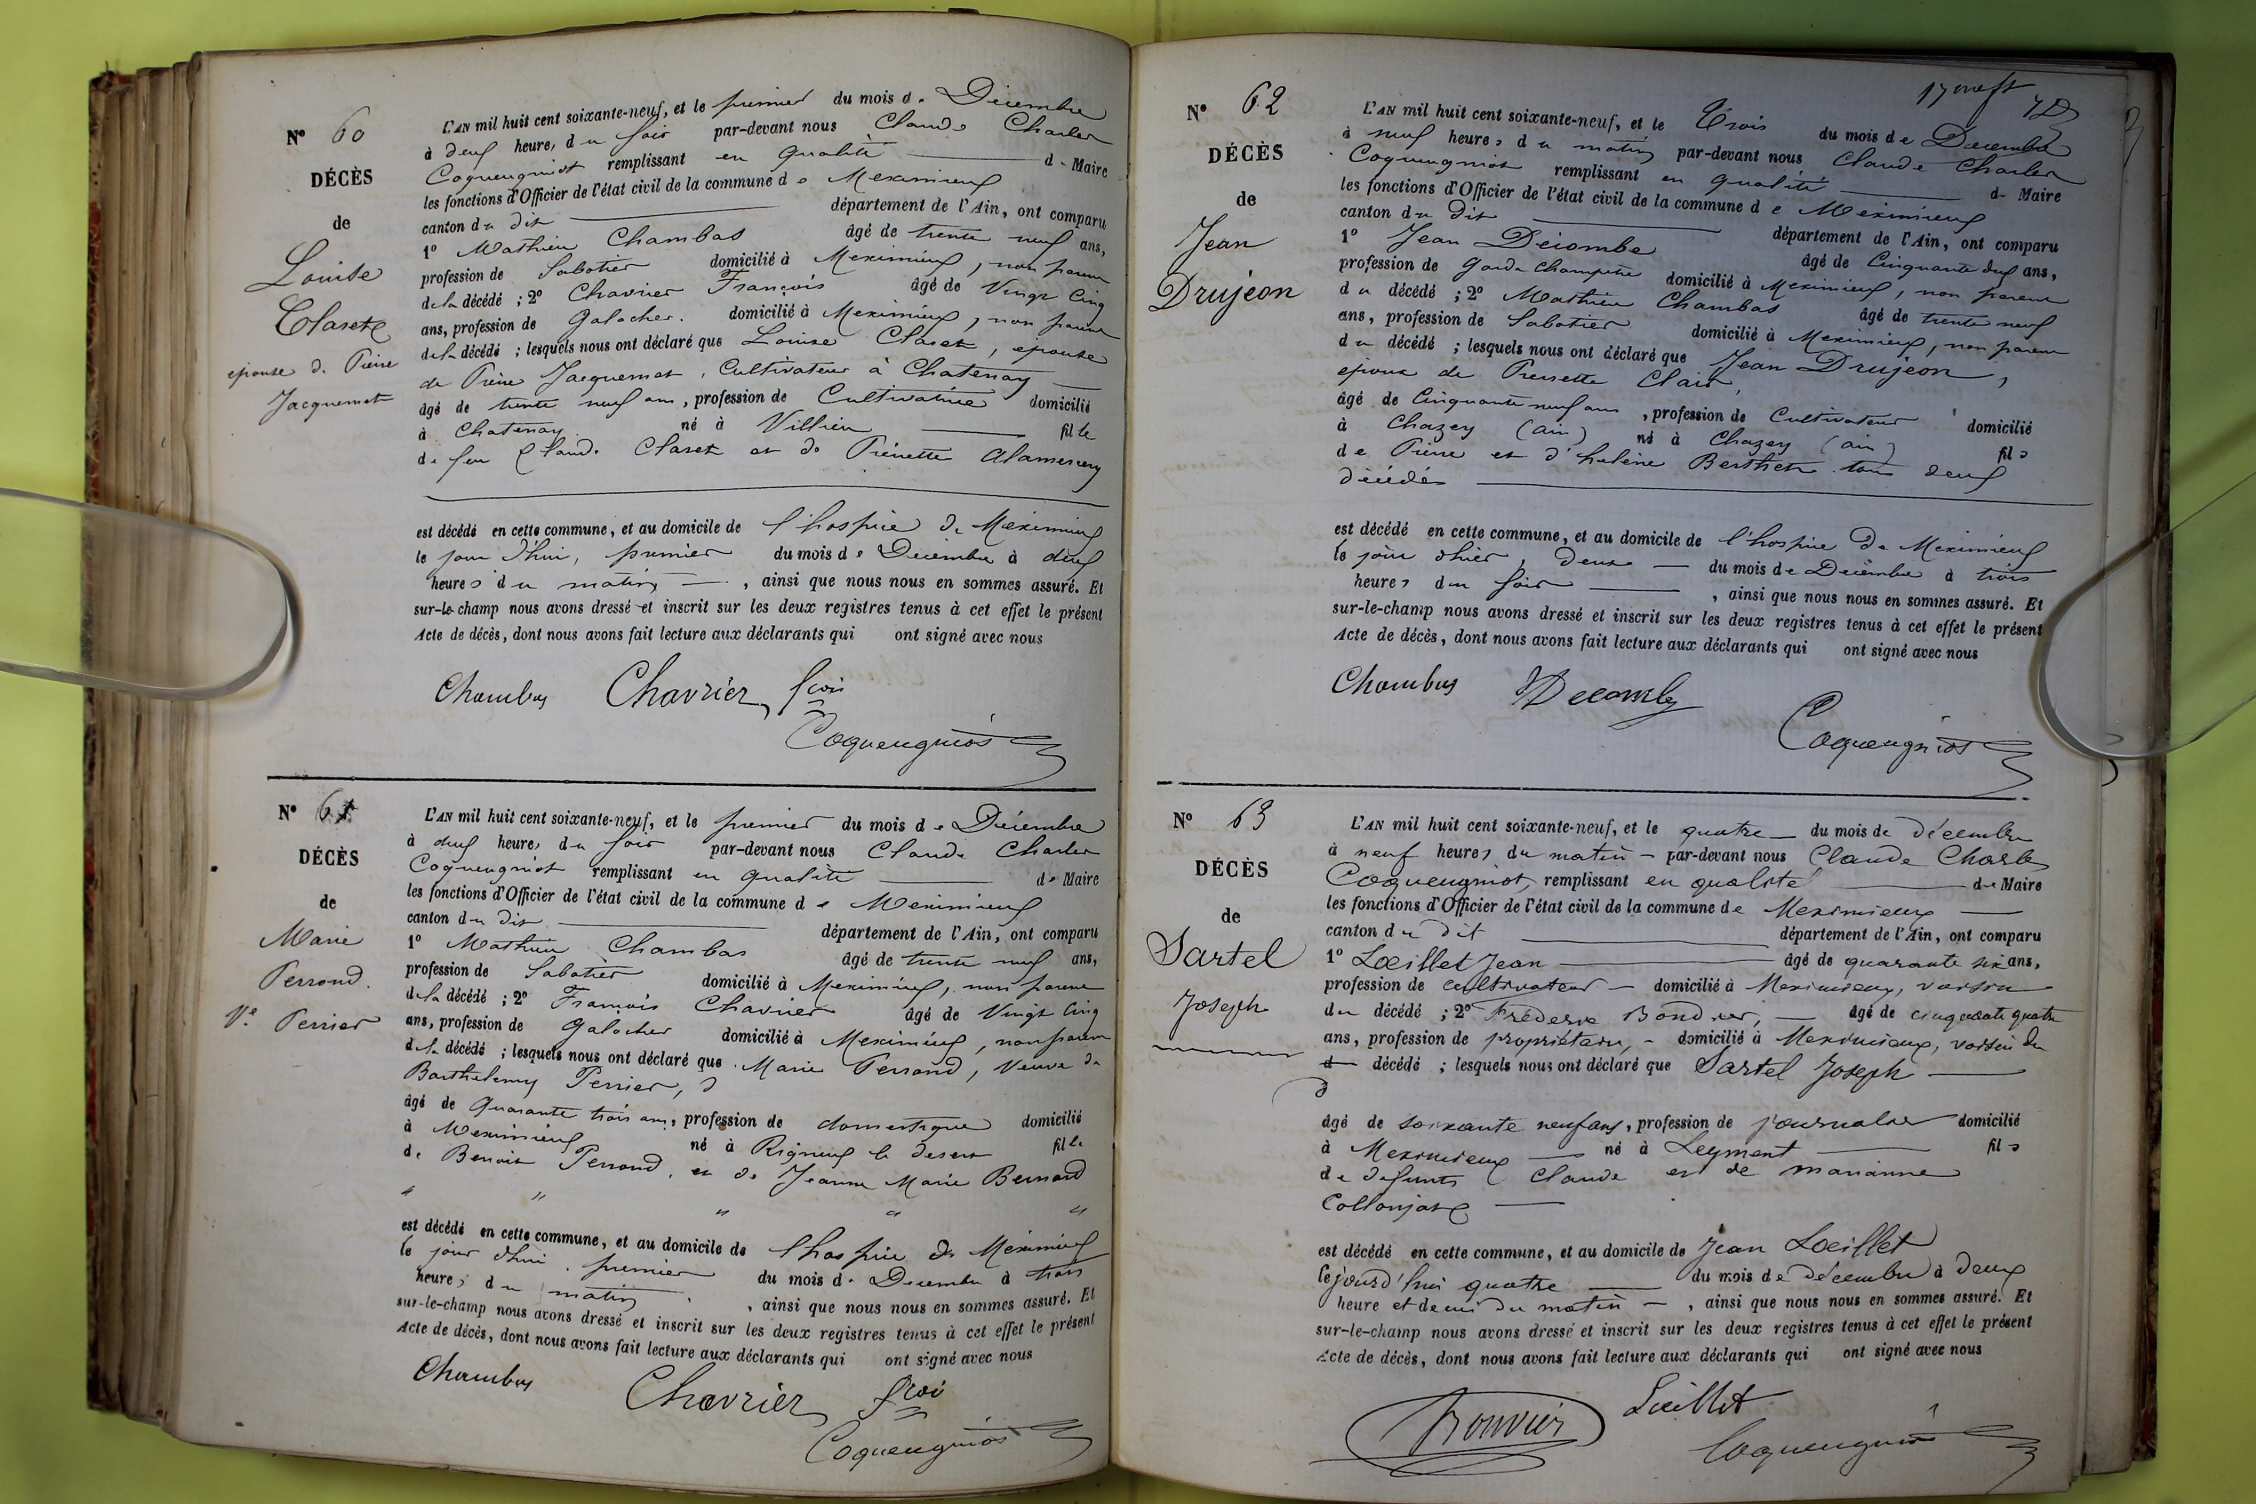 N° 60
DÉCÈS
de
Louise
Claret
épouse de Pierre
Jacquemet
L'AN mil huit cent soixante-neuf, et le premier du mois de Décembre
à deux heures du soir par-devant nous Claude Charles
Coquengniot remplissant en qualité de Maire
les fonctions d'Officier de l'état civil de la commune de Meximieux
canton du dit département de l'Ain, ont comparu
1° Mathieu Chambas âgé de trente neuf ans,
profession de Sabotier domicilié à Meximieux, non parent
de la décédé ; 2° Chavrier François âgé de Vingt Cinq
ans, profession de Galocher. domicilié à Meximieux, non parent
de la décédé ; lesquels nous ont déclaré que Louise Claret, épouse
de Pierre Jacquemet, Cultivateur à Chatenay
âgé de trente neuf ans, profession de Cultivatrice domicilié
à Chatenay né à Villieu fille
de feu Claude Claret et de Pierrette Alamercery
est décédé en cette commune, et au domicile de l'hospice de Meximieux
le jour d'hui, premier du mois de Décembre à deux
heures du matin, ainsi que nous nous en sommes assuré. Et
sur-le-champ nous avons dressé et inscrit sur les deux registres tenus à cet effet le présent
Acte de décès, dont nous avons fait lecture aux déclarants qui ont signé avec nous
Chambas Chavrier fçois
Coquengniot
N° 61
DÉCÈS
de
Marie
Perrond.
Ve Perrier
L'AN mil huit cent soixante-neuf, et le premier du mois de Décembre
à deux heures du soir par-devant nous Claude Charles
Coquengniot remplissant en qualité de Maire
les fonctions d'Officier de l'état civil de la commune de Meximieux
canton du dit département de l'Ain, ont comparu
1° Mathieu Chambas âgé de trente neuf ans,
profession de Sabotier domicilié à Meximieux, non parent
de la décédé ; 2° François Chavrier âgé de Vingt Cinq
ans, profession de Galocher domicilié à Meximieux, non parent
de la décédé ; lesquels nous ont déclaré que Marie Perrond, Veuve de
Barthelemy Perrier,
âgé de Quarante trois ans, profession de domestique domicilié
à Meximieux né à Rignieux le desert fille
de Benoit Perrond, et de Jeanne Marie Bernard
" " " " "
est décédé en cette commune, et au domicile de l'hospice de Meximieux
le jour d'hui, premier du mois de Décembre à trois
heures du matin, ainsi que nous nous en sommes assuré. Et
sur-le-champ nous avons dressé et inscrit sur les deux registres tenus à cet effet le présent
Acte de décès, dont nous avons fait lecture aux déclarants qui ont signé avec nous
Chambas Chavrier fçoi
Coquengniot
N° 62
DÉCÈS
de
Jean
Drujeon
L'AN mil huit cent soixante-neuf, et le Trois du mois de Décembre
à neuf heures du matin par-devant nous Claude Charles
Coquengniot remplissant en qualité de Maire
les fonctions d'Officier de l'état civil de la commune de Meximieux
canton du dit département de l'Ain, ont comparu
1° Jean Décombe âgé de Cinquante deux ans,
profession de Garde Champêtre domicilié à Meximieux, non parent
du décédé ; 2° Mathieu Chambas âgé de trente neuf
ans, profession de Sabotier domicilié à Meximieux, non parent
du décédé ; lesquels nous ont déclaré que Jean Drujeon,
époux de Pierrette Clair,
âgé de Cinquante neuf ans, profession de Cultivateur domicilié
à Chazey (ain) né à Chazey (ain) fils
de Pierre et d'helène Berthet tous deux
décédés
est décédé en cette commune, et au domicile de l'hospice de Meximieux
le jour d'hier, deux du mois de Décembre à trois
heures du soir, ainsi que nous nous en sommes assuré. Et
sur-le-champ nous avons dressé et inscrit sur les deux registres tenus à cet effet le présent
Acte de décès, dont nous avons fait lecture aux déclarants qui ont signé avec nous
Chambas Decomby
Coquengniot
N° 63
DÉCÈS
de
Sartel
Joseph
L'AN mil huit cent soixante-neuf, et le quatre du mois de décembre
à neuf heures du matin par-devant nous Claude Charles
Coquengniot, remplissant en qualité de Maire
les fonctions d'Officier de l'état civil de la commune de Meximieux
canton du dit département de l'Ain, ont comparu
1° Lœillet Jean âgé de quarante six ans,
profession de cultivateur domicilié à Meximieux, voisin
du décédé ; 2° Frederic Bondvier, âgé de cinquante quatre
ans, profession de propriétaire, domicilié à Meximieux, voisin du
d décédé ; lesquels nous ont déclaré que Sartel Joseph
âgé de soixante neuf ans, profession de journalier domicilié
à Meximieux né à Leyment fils
de defunts Claude et de marianne
Collonjat
est décédé en cette commune, et au domicile de Jean Lœillet
lejourd'hui quatre du mois de décembre à deux
heure et demi du matin, ainsi que nous nous en sommes assuré. Et
sur-le-champ nous avons dressé et inscrit sur les deux registres tenus à cet effet le présent
Acte de décès, dont nous avons fait lecture aux déclarants qui ont signé avec nous
Lœillet
Coquengniot